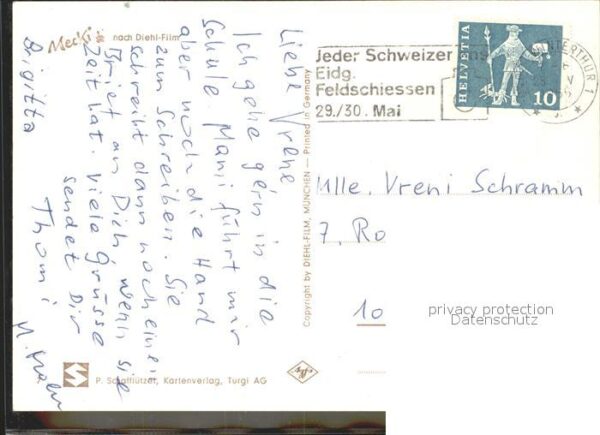 Mecki nach Diehl-Film
Liebe Vrene
Ich gehe gern in die
Schule Mami führt mir
aber noch die Hand
zum Schreiben. Sie
schreibt dann noch einen
Brief an Dich wenn sie
Zeit hat. Viele Grüsse
sendet Dir
Thomi
Brigitta
Jeder Schweizer
Eidg.
Feldschiessen
29./30. Mai
HELVETIA
10
WINTERTHUR 1
Mlle. Vreni Schramm
7, Ro
10
Copyright by DIEHL-FILM, MÜNCHEN — Printed in Germany
P. Schafflützel, Kartenverlag, Turgi AG
privacy protection
Datenschutz